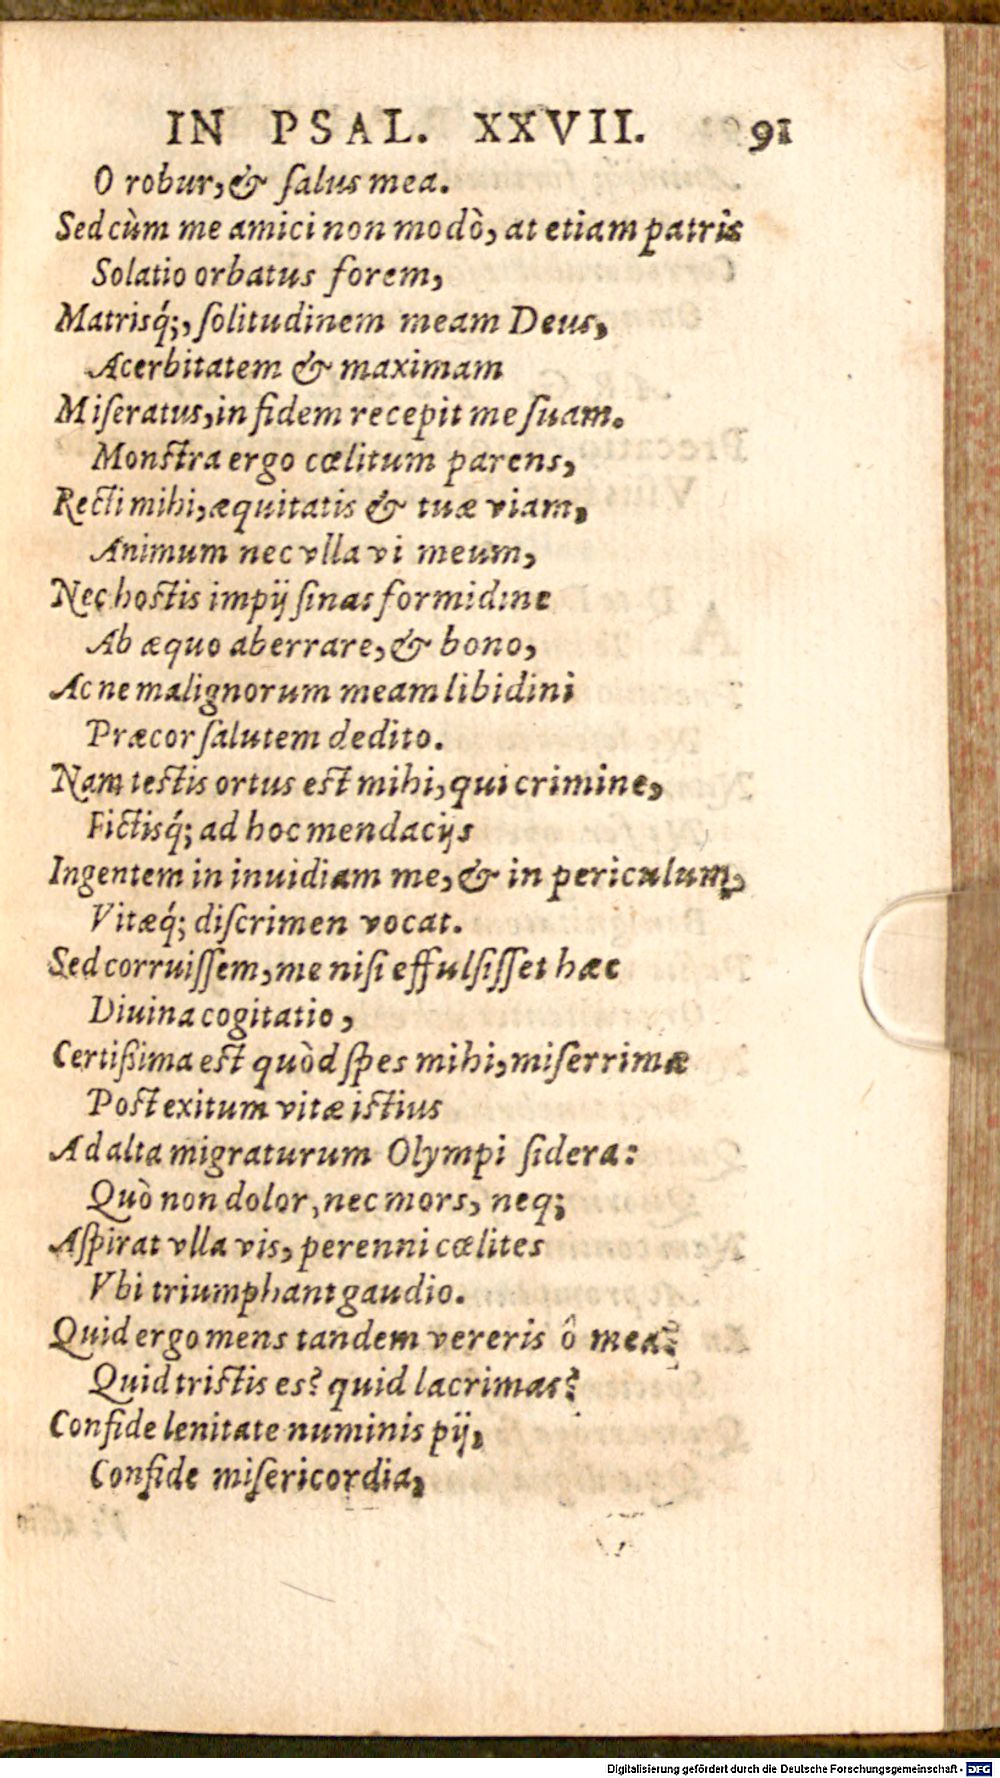 IN PSAL. XXVII. 91
O robur, & ſalus mea.
Sed cùm me amici non modò, at etiam patris
Solatio orbatus forem,
Matrisq́;, ſolitudinem meam Deus,
Acerbitatem & maximam
Miſeratus, in fidem recepit me ſuam.
Monſtra ergo cœlitum parens,
Recti mihi, æquitatis & tuæ viam,
Animum nec vlla vi meum,
Nec hoſtis impij ſinas formidine
Ab æquo aberrare, & bono,
Ac ne malignorum meam libidini
Præcor ſalutem dedito.
Nam teſtis ortus eſt mihi, qui crimine,
Fictisq́; ad hoc mendacijs
Ingentem in inuidiam me, & in periculum,
Vitæq́; diſcrimen vocat.
Sed corruiſſem, me niſi effulſiſſet hæc
Diuina cogitatio,
Certißima eſt quòd ſpes mihi, miſerrimæ
Poſt exitum vitæ iſtius
Ad alta migraturum Olympi ſidera:
Quò non dolor, nec mors, neq;
Aſpirat vlla vis, perenni cœlites
Vbi triumphant gaudio.
Quid ergo mens tandem vereris ô mea?
Quid triſtis es? quid lacrimas?
Confide lenitate numinis pij,
Confide miſericordia,
Digitalisierung gefördert durch die Deutsche Forschungsgemeinschaft - DFG